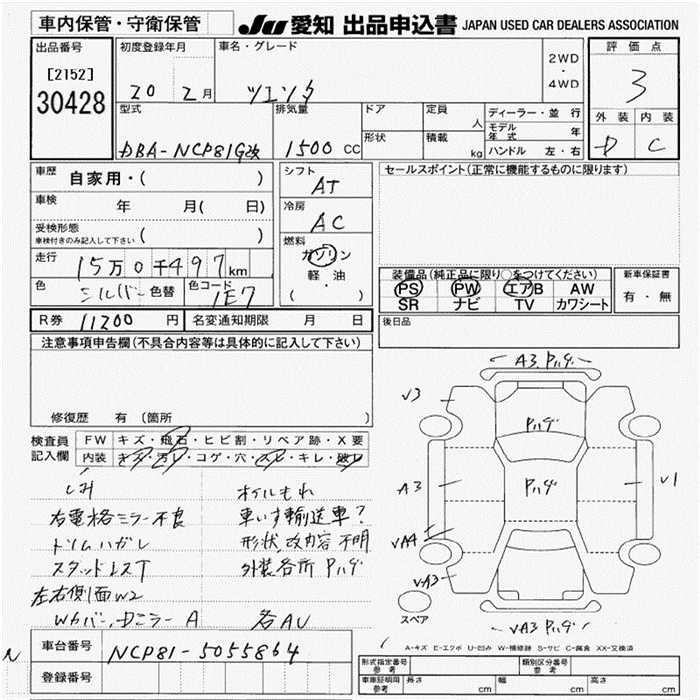 車内保管・守衛保管
JU 愛知 出品申込書 JAPAN USED CAR DEALERS ASSOCIATION
出品番号
[2152]
30428
初度登録年月
20 2月
車名・グレード
2WD
・
4WD
評価点
3
外装 内装
D C
型式
DBA-NCP81G改
排気量
1500 CC
ドア
形状
定員
人
積載
kg
ディーラー・並 行
モデル年式 年
ハンドル 左・右
車歴
自家用・( )
車検
年 月( 日)
受検形態
車検付きのみ記入して下さい ( )
走行
15万0千497km
色
シルバー 色替
色コード
1E7
シフト
AT
冷房
AC
燃料
ガソリン
・
軽油
( )
セールスポイント(正常に機能するものに限ります)
装備品(純正品に限り○をつけてください)
PS PW エアB AW
SR ナビ TV カワシート
新車保証書
有・無
後日品
R券 11200 円
名変通知期限 月 日
注意事項申告欄(不具合内容等は具体的に記入して下さい)
修復歴 有 (箇所 )
検査員
記入欄
FW キズ・飛石・ヒビ割・リペア跡・X要
内装 キズ・汚レ・コゲ・穴・スレ・キレ・破レ
しみ
右電格ミラー不良
トリムハガレ
スタッドレスT
左右側面W2
Wカバー、Dミラー A
オイルもれ
車いす輸送車?
形状、改内容 不明
外装各所 Pハゲ
各AU
A3.Pハゲ
V3
Pハゲ
A3
Pハゲ
V1
VA4
VA3
スペア
VA3 Pハゲ
A-キズ E-エクボ U-凹み W-補修跡 S-サビ C-腐食 XX-交換済
N
車台番号
NCP81-5055864
登録番号
形式指定番号
参考
類別区分番号
参考
車庫証明用
参考
長さ cm
幅 cm
高さ cm